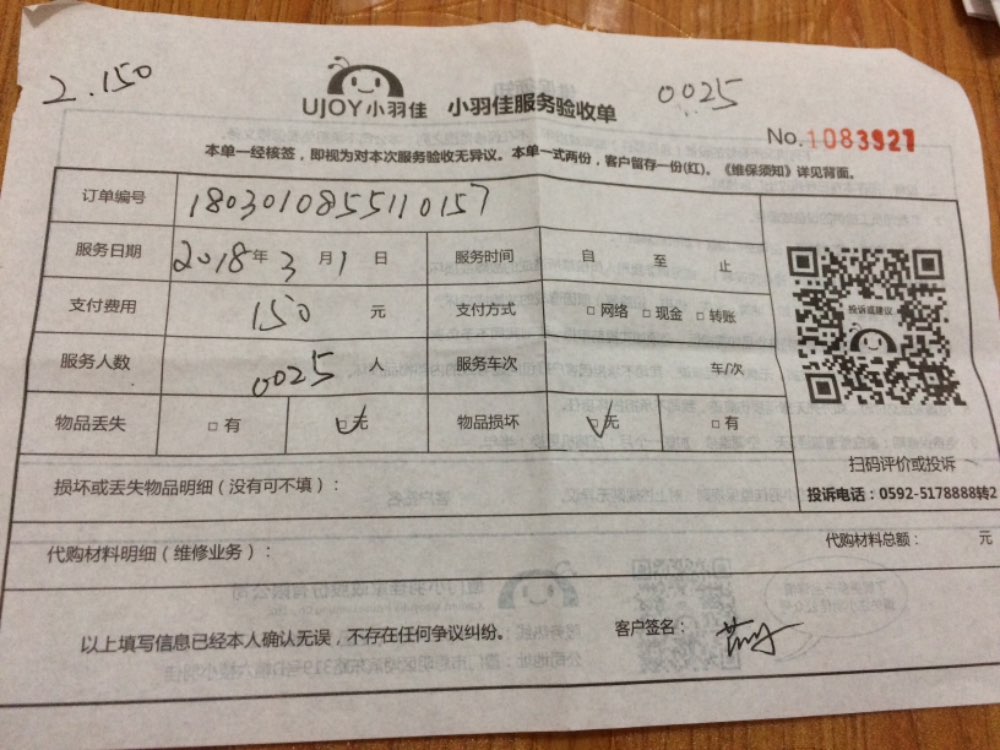 2.150
0025
UJOY小羽佳 小羽佳服务验收单
No.1083927
本单一经核签，即视为对本次服务验收无异议。本单一式两份，客户留存一份(红)。《维保须知》详见背面。
订单编号 1803010855110157
服务日期 2018年3月1日 服务时间 自 至 止
支付费用 150 元 支付方式 □网络 □现金 □转账
服务人数 0025 人 服务车次 车/次
物品丢失 □有 ☑无 物品损坏 ☑无 □有
投诉或建议
扫码评价或投诉
投诉电话：0592-5178888转2
损坏或丢失物品明细（没有可不填）：
代购材料明细（维修业务）： 代购材料总额： 元
以上填写信息已经本人确认无误，不存在任何争议纠纷。 客户签名：